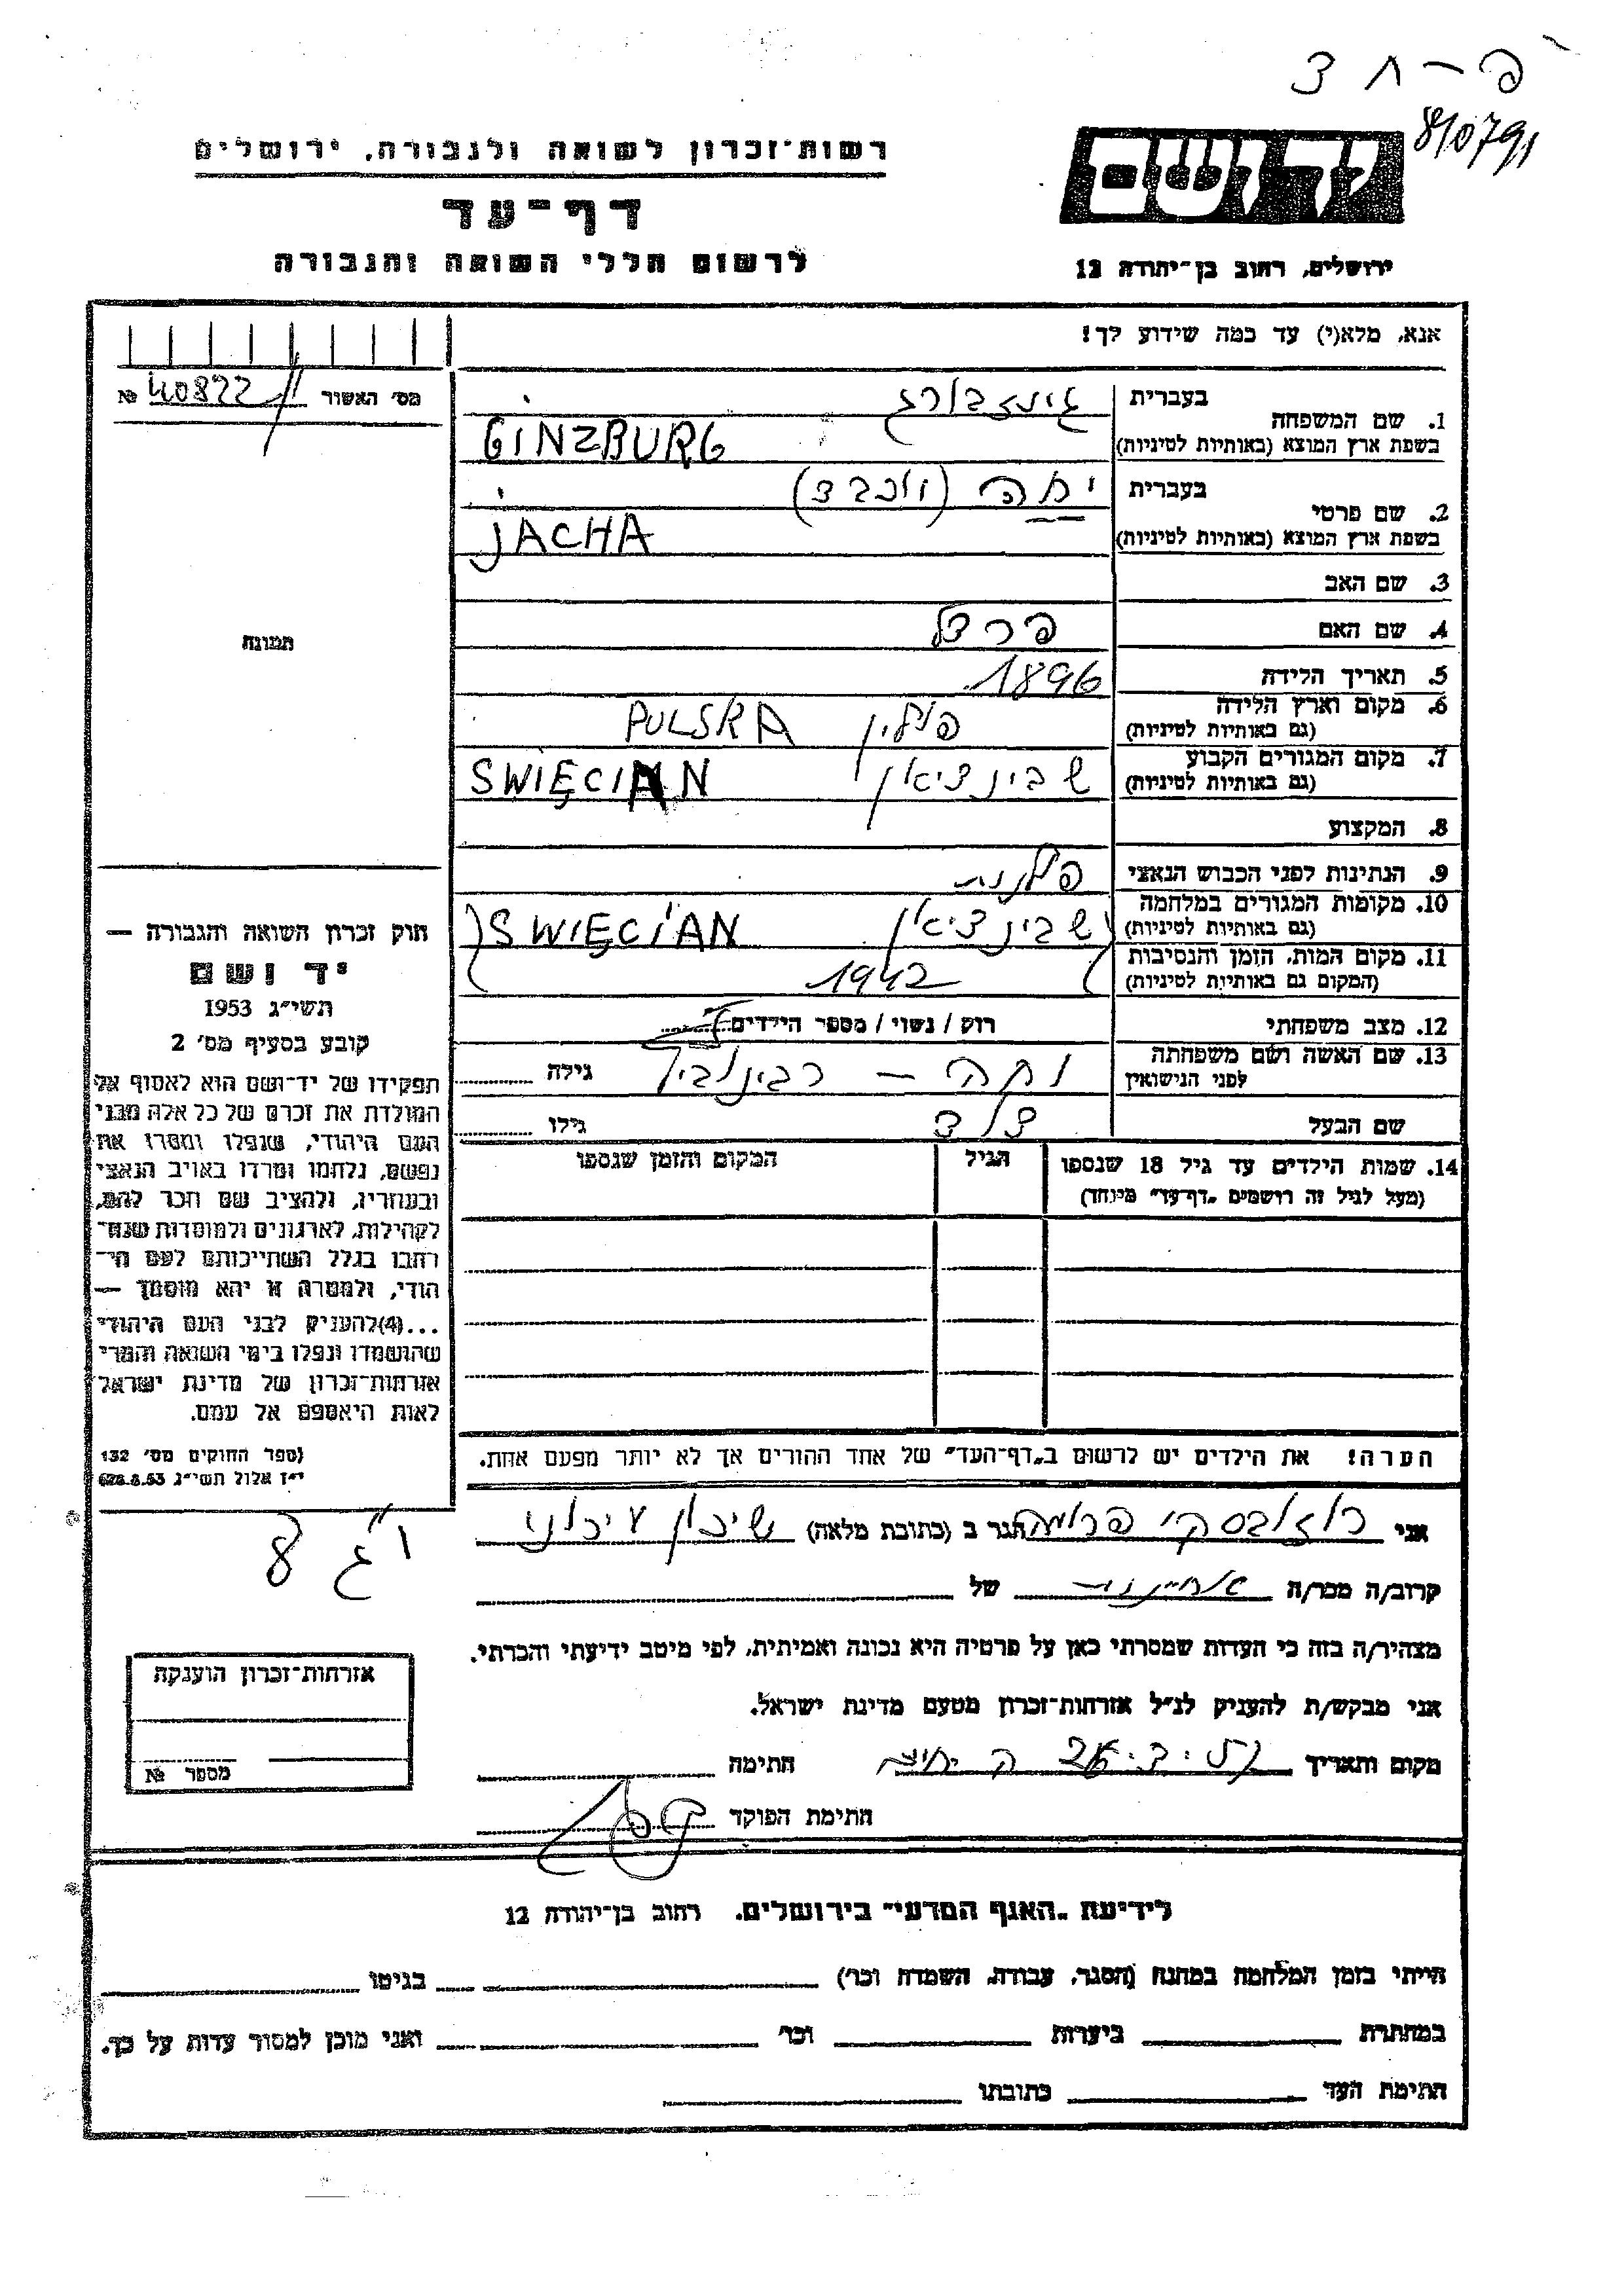 פ-ח צ
810791
ידושם
רשות־זכרון לשואה ולגבורה, ירושלים
דף־עד
לרשום חללי השואה והגבורה
ירושלים, רחוב בן־יהודה 12
אנא, מלא(י) עד כמה שידוע לך!
מס׳ האשור 40822 №
1. שם המשפחה
בעברית גינזבורג
בשפת ארץ המוצא (באותיות לטיניות) GINZBURG
2. שם פרטי
בעברית יחה
בשפת ארץ המוצא (באותיות לטיניות) JACHA
3. שם האב
תמונה
4. שם האם
5. תאריך הלידה 1896
6. מקום וארץ הלידה פולין PULSKA
(גם באותיות לטיניות)
7. מקום המגורים הקבוע שבינציאן SWIĘCIAN
(גם באותיות לטיניות)
8. המקצוע
9. הנתינות לפני הכבוש הנאצי פולנית
10. מקומות המגורים במלחמה שבינציאן SWIĘCIAN
(גם באותיות לטיניות)
11. מקום המות, הזמן והנסיבות 1942
(המקום גם באותיות לטיניות)
12. מצב משפחתי רוק / נשוי / מספר הילדים
13. שם האשה ושם משפחתה
לפני הנישואין יחה – רבינוביץ גילה
שם הבעל גילו
14. שמות הילדים עד גיל 18 שנספו הגיל המקום והזמן שנספו
(מעל לגיל זה רושמים „דף־עד״ מיוחד)
הערה! את הילדים יש לרשום ב„דף־העד״ של אחד ההורים אך לא יותר מפעם אחת.
חוק זכרון השואה והגבורה —
יד ושם
תשי״ג 1953
קובע בסעיף מס׳ 2
תפקידו של יד־ושם הוא לאסוף אל
המולדת את זכרם של כל אלה מבני
העם היהודי, שנפלו ומסרו את
נפשם, נלחמו ומרדו באויב הנאצי
ובעוזריו, ולהציב שם וזכר להם,
לקהילות, לארגונים ולמוסדות שנח־
רבו בגלל השתייכותם לעם הי־
הודי, ולמטרה זו יהא מוסמך —
...(4)להעניק לבני העם היהודי
שהושמדו ונפלו בימי השואה והמרי
אזרחות־זכרון של מדינת ישראל
לאות היאספם אל עמם.
(ספר החוקים מס׳ 132
י״ז אלול תשי״ג 28.8.53)
אני רוזובסקי פרומה הגר ב (כתובת מלאה) שיכון עיכוני
קרוב/ה מכר/ה אחיינית של
מצהיר/ה בזה כי העדות שמסרתי כאן על פרטיה היא נכונה ואמיתית, לפי מיטב ידיעתי והכרתי.
אני מבקש/ת להעניק לנ״ל אזרחות־זכרון מטעם מדינת ישראל.
מקום ותאריך חתימה
חתימת הפוקד
אזרחות־זכרון הוענקה
מספר №
לידיעת „האגף המדעי״ בירושלים. רחוב בן־יהודה 12
הייתי בזמן המלחמה במחנה (הסגר, עבודה, השמדה וכו׳) בגיטו
במחתרת ביערות וכו׳ ואני מוכן למסור עדות על כך.
חתימת העד כתובתו